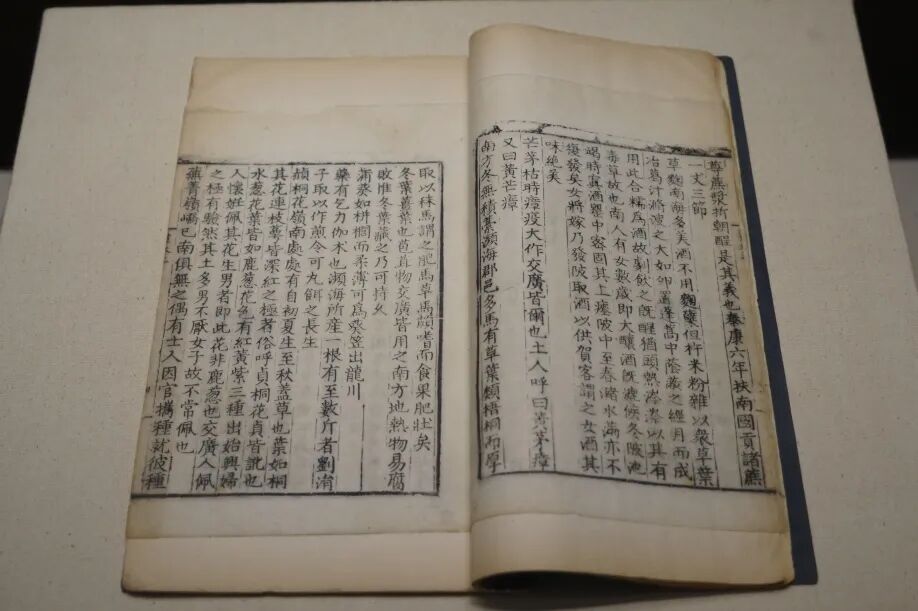 尊蔗漿析朝酲是其義也泰康六年扶南國貢諸蔗
一丈三節
草麴南海多美酒不用麴蘖但杵米粉雜以衆草葉
冶葛汁滫溲之大如卵置蓬蒿中蔭蔽之經月而成
用此合糯爲酒故劇飲之既醒猶頭熱涔涔以其有
毒草故也南人有女數歲即大釀酒既漉候冬陂池
竭時寘酒罌中密固其上瘞陂中至春瀦水滿亦不
復發矣女將嫁乃發陂取酒以供賀客謂之女酒其
味絶美
芒茅枯時瘴疫大作交廣皆爾也土人呼曰黃茅瘴
又曰黃芒瘴
南方冬無積藁瀕海郡邑多馬有草葉類梧桐而厚
取以秣馬謂之肥馬草馬頗嗜而食果肥壯矣
冬葉薑葉也苞苴物交廣皆用之南方地熱物易腐
敗惟冬葉藏之乃可持久
蒲葵如栟櫚而柔薄可爲葵笠出龍川
藥有乞力伽朮也瀕海所產一根有至數斤者劉涓
子取以作煎令可丸餌之長生
赬桐花嶺南處處有自初夏生至秋蓋草也葉如桐
其花連枝萼皆深紅之極者俗呼貞桐花貞皆訛也
水葱花葉皆如鹿葱花色有紅黃紫三種出始興婦
人懷妊佩其花生男者即此花非鹿葱也交廣人佩
之極有驗然其土多男不厭女子故不常佩也
蕪菁嶺嶠已南俱無之偶有士人因官攜種就彼種